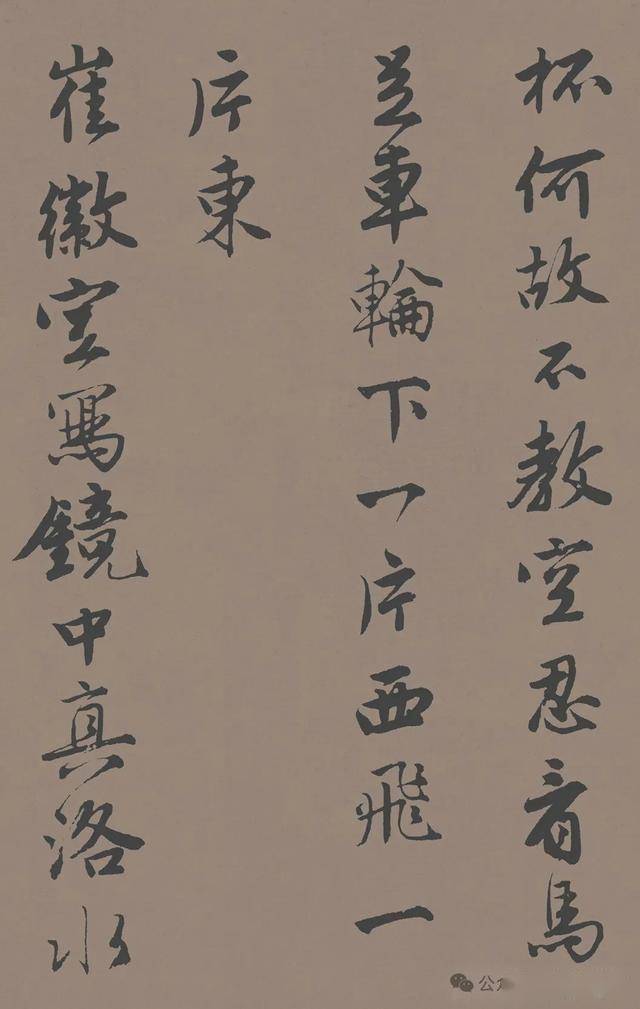 杯何故不教空忍看馬
足車輪下一片西飛一
片東
崔徽空寫鏡中真洛水
公